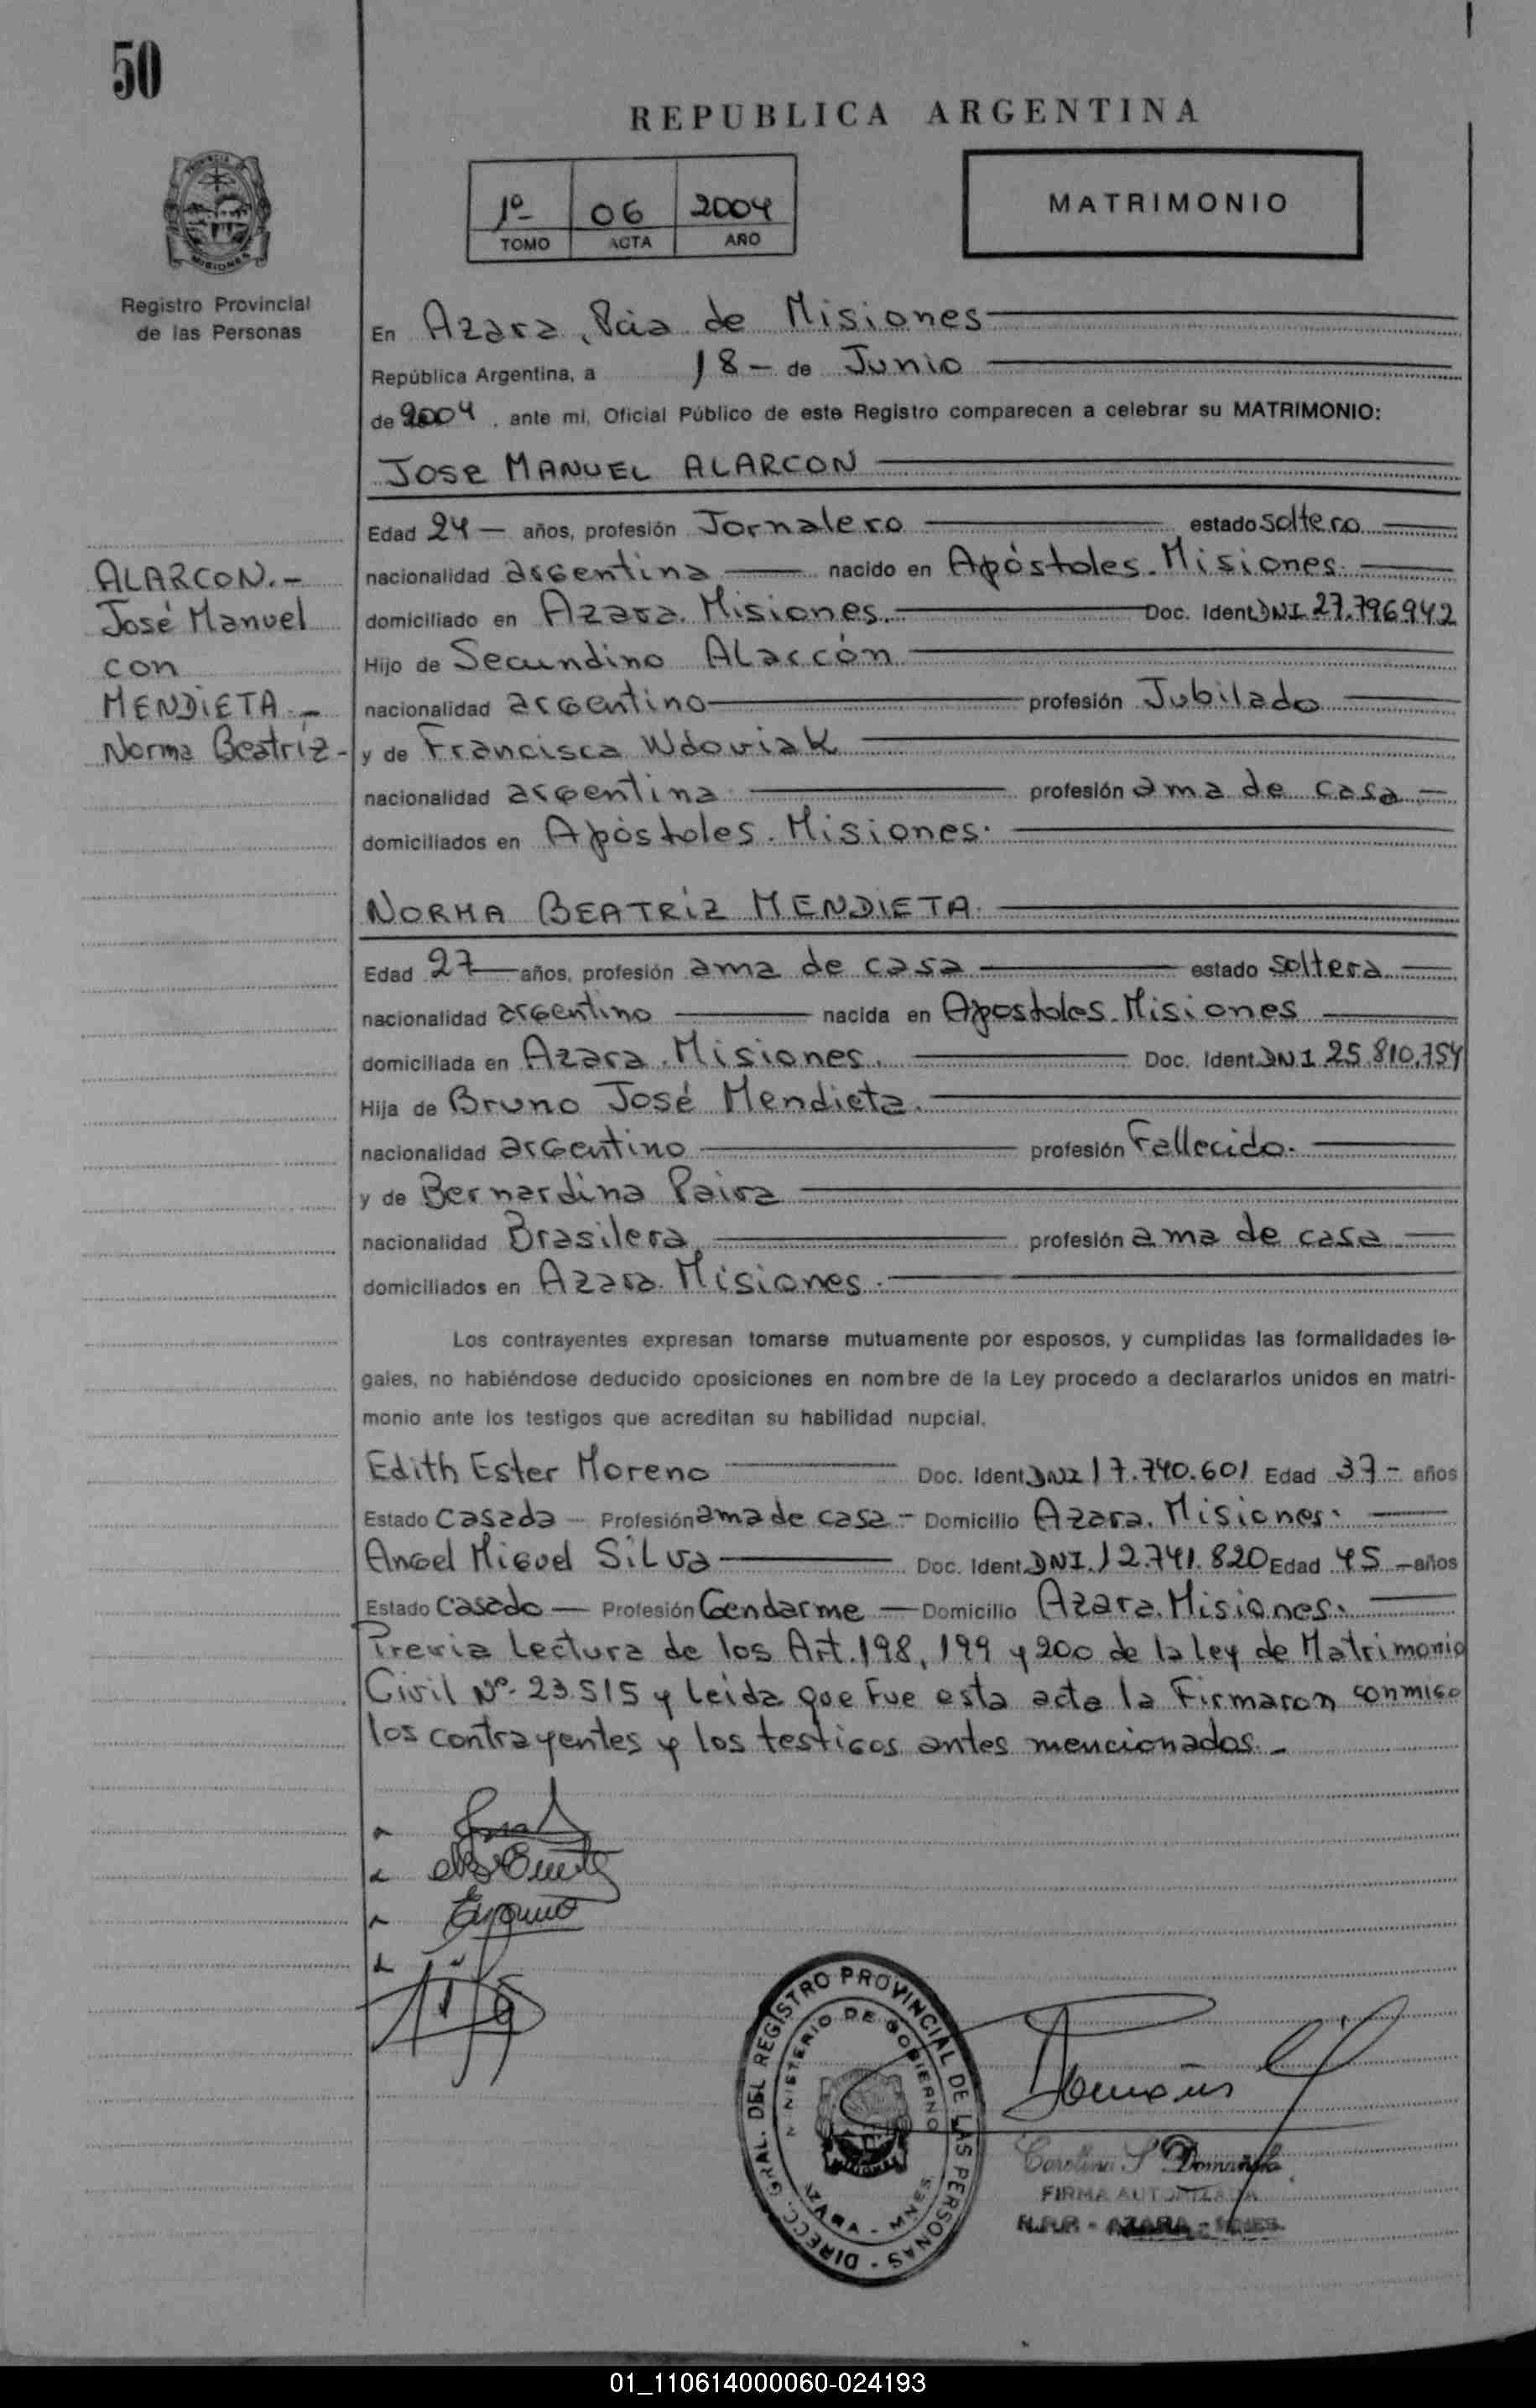 50
REPUBLICA ARGENTINA
1º 06 2004
TOMO ACTA AÑO
MATRIMONIO
Registro Provincial
de las Personas
En Azara, Pcia de Misiones
República Argentina, a 18 - de Junio
de 2004, ante mi, Oficial Público de este Registro comparecen a celebrar su MATRIMONIO:
JOSE MANUEL ALARCON
Edad 24 - años, profesión Jornalero estado soltero
nacionalidad argentina nacido en Apóstoles. Misiones.
domiciliado en Azara. Misiones. Doc. Ident. DNI 27.796942
Hijo de Secundino ALarcón
nacionalidad argentino profesión Jubilado
y de Francisca Wdoviak
nacionalidad argentina profesión ama de casa
domiciliados en Apóstoles. Misiones.
ALARCON.-
José Manuel
con
MENDIETA.-
Norma Beatríz-
NORMA BEATRÍZ MENDIETA.
Edad 27 años, profesión ama de casa estado soltera
nacionalidad argentino nacida en Apostoles. Misiones
domiciliada en Azara. Misiones. Doc. Ident. DNI 25.810.754
Hija de Bruno José Mendieta.
nacionalidad argentino profesión Fallecido.
y de Bernardina Paiva
nacionalidad Brasilera profesión ama de casa
domiciliados en Azara. Misiones.
Los contrayentes expresan tomarse mutuamente por esposos, y cumplidas las formalidades le-
gales, no habiéndose deducido oposiciones en nombre de la Ley procedo a declararlos unidos en matri-
monio ante los testigos que acreditan su habilidad nupcial.
Edith Ester Moreno Doc. Ident. DNI 17.740.601 Edad 37 - años
Estado casada - Profesión ama de casa - Domicilio Azara. Misiones.
Angel Miguel SiLva Doc. Ident. DNI. 12.741.820 Edad 45 - años
Estado casado - Profesión Gendarme - Domicilio Azara. Misiones.
Previa Lectura de los Art. 198, 199 y 200 de la Ley de Matrimonio
Civil Nº 23.515 y Leida que fue esta acta la Firmaron conmigo
los contrayentes y los testigos antes mencionados.-
DIRECC. GRAL. DEL REGISTRO PROVINCIAL DE LAS PERSONAS
MINISTERIO DE GOBIERNO
AZARA - MNES.
Carolina S
FIRMA AUTORIZADA
AZARA - MNES.
01_110614000060-024193